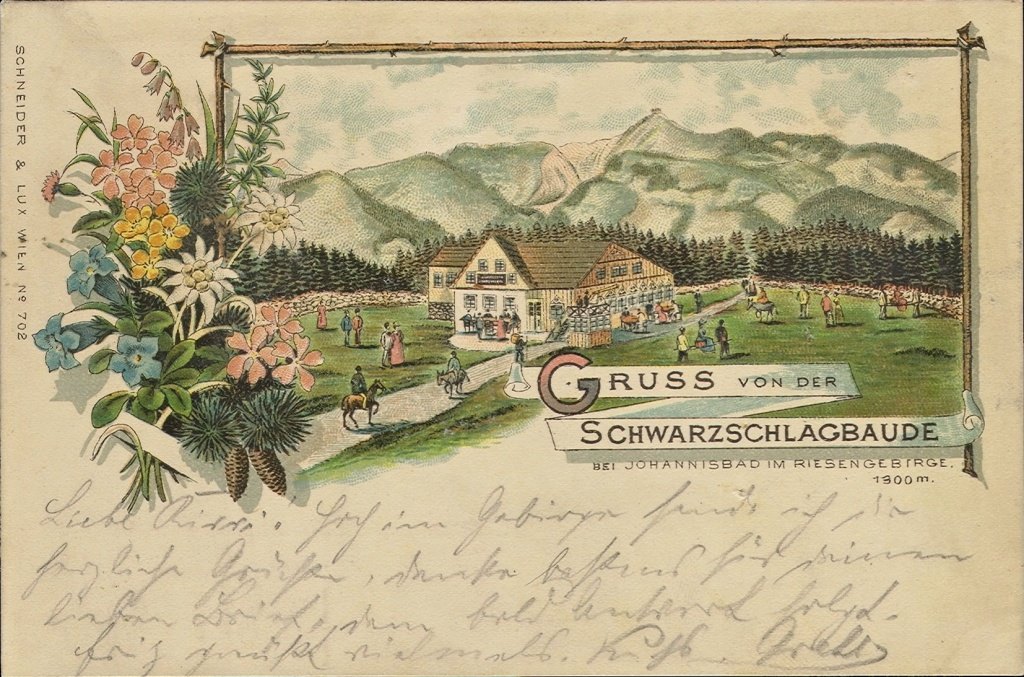 SCHNEIDER & LUX WIEN No 702
GRUSS VON DER
SCHWARZSCHLAGBAUDE
BEI JOHANNISBAD IM RIESENGEBIRGE.
1300m.
Hoch im Gebirge sende ich die
herzliche Grüße, danke bestens für deinen
lieben Brief, dem bald Antwort folgt.
Fritz grüßt vielmals.